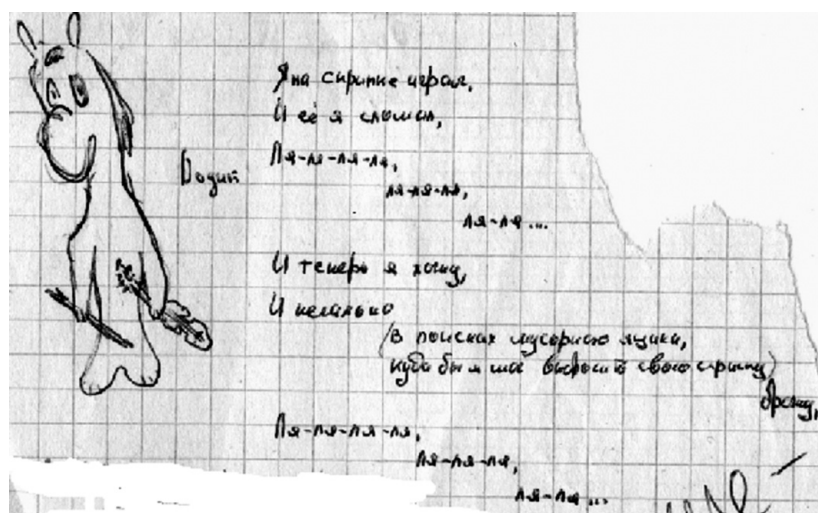 Я на скрипке играл,
И её я сломал,
Ля-ля-ля-ля,
ля-ля-ля,
ля-ля...
И теперь я хожу,
И печально
(в поисках мусорного ящика,
куда бы я мог выбросить свою скрипку)
брожу,
Ля-ля-ля-ля,
ля-ля-ля,
ля-ля...